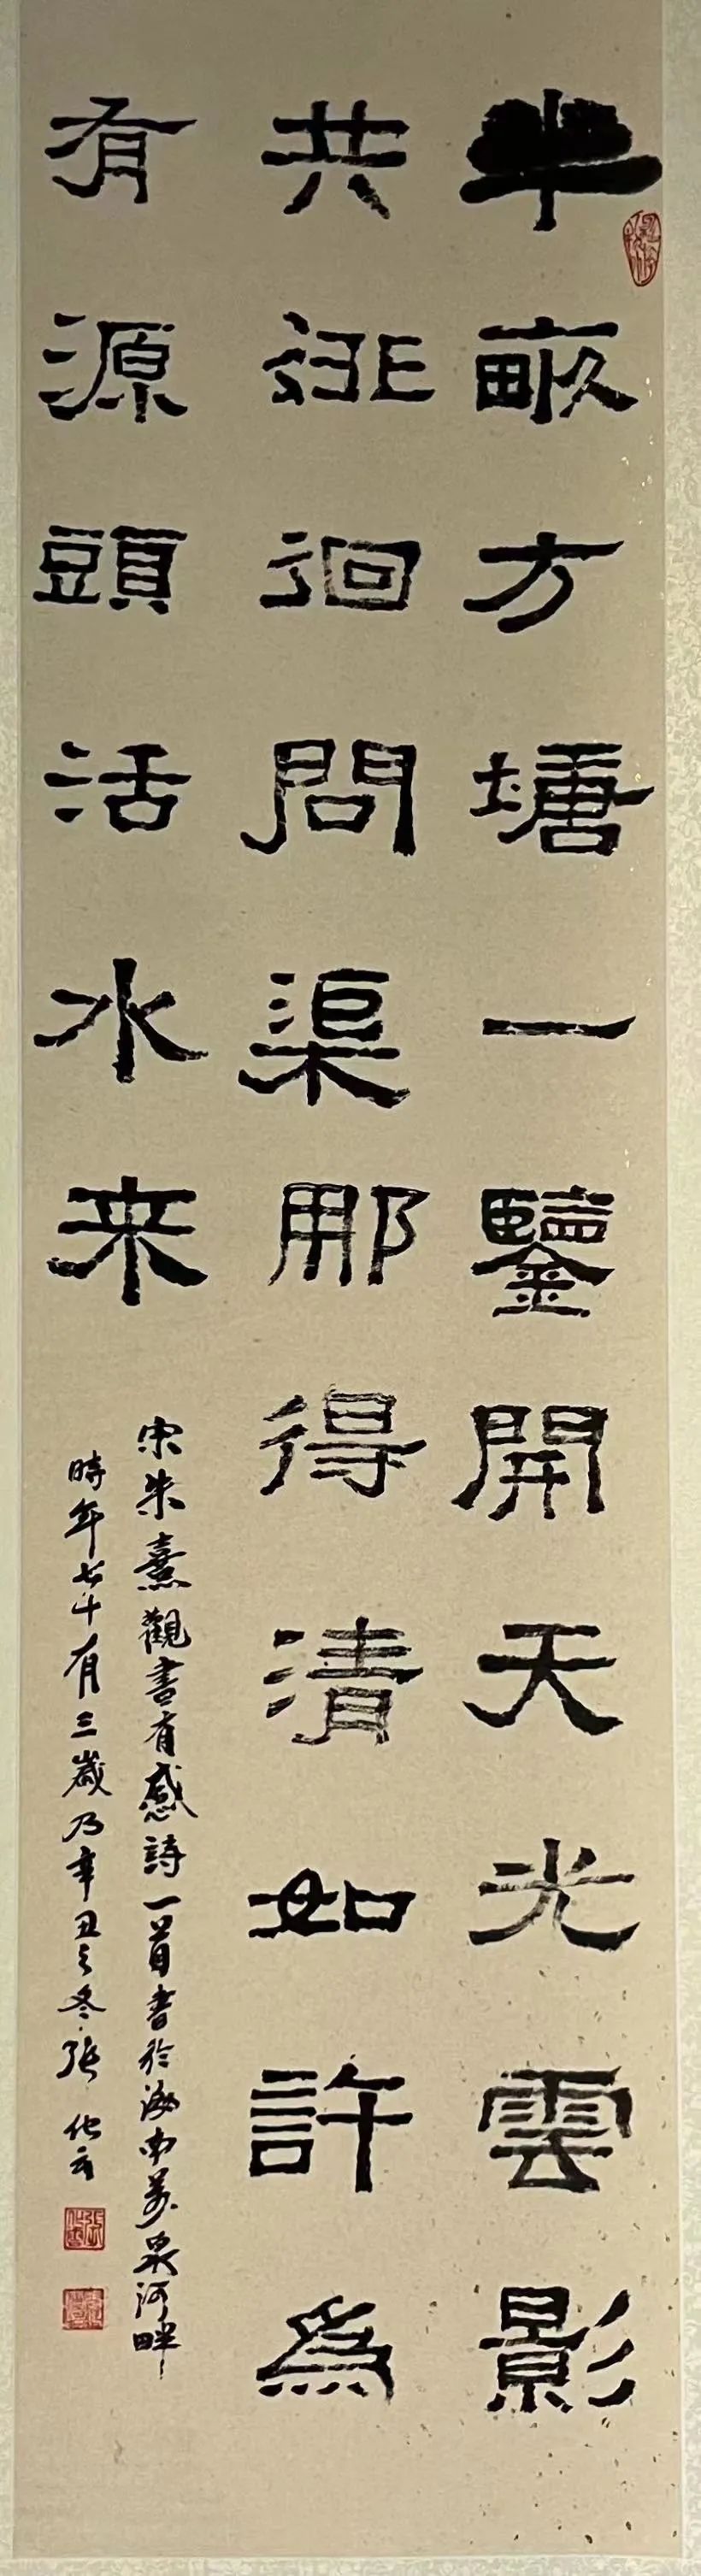 半畝方塘一鑒開天光雲影
共徘徊問渠那得清如許為
有源頭活水来
宋朱熹觀書有感詩一首書於海南萬泉河畔
時年七十有三歲乃辛丑之冬張化云